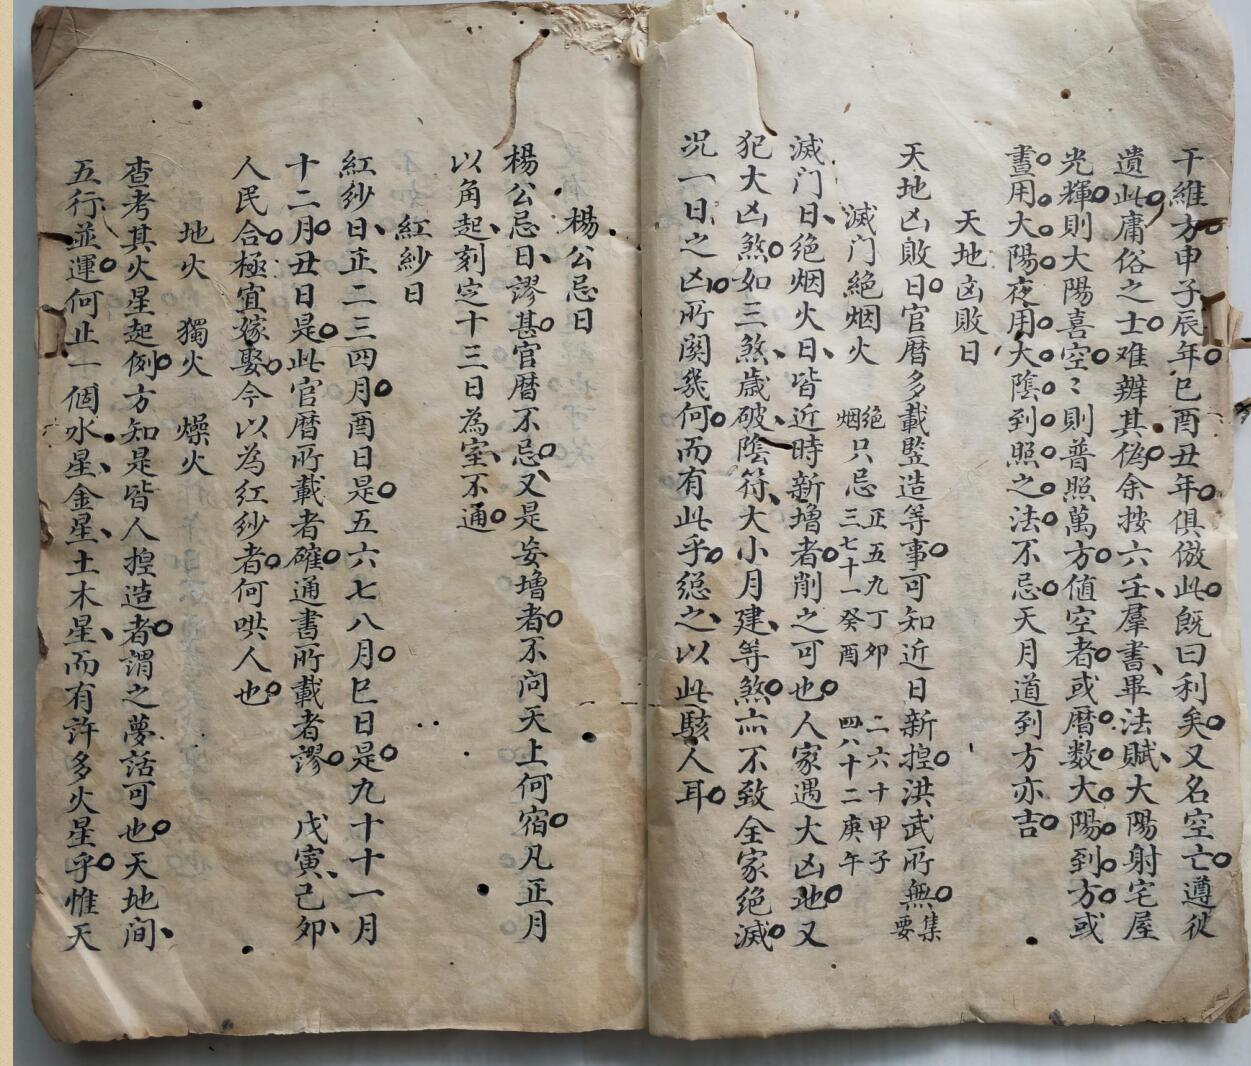 干維方申子辰年巳酉丑年俱倣此既曰利矣又名空亡遵彼
遺此庸俗之士难辨其偽余按六壬羣書畢法賦大陽射宅屋
光輝則大陽喜空〻則普照萬方値空者或曆数大陽到方或
晝用大陽夜用大陰到照之法不忌天月道到方亦吉
天地凶敗日
天地凶敗日官曆多載監造等事可知近日新揑洪武所無集要
滅门絕烟火 絕烟只忌 正五九丁卯 三七十一癸酉 二六十甲子 四八十二庚午
滅门日绝烟火日皆近時新增者削之可也人家遇大凶地又
犯大凶煞如三煞歲破陰符大小月建等煞亦不致全家绝滅
况一日之凶所関幾何而有此乎緫之以此駭人耳
楊公忌日
楊公忌日謬甚官曆不忌又是妄增者不问天上何宿凡正月
以角起刻定十三日為室不通
紅紗日
紅紗日正二三四月酉日是五六七八月巳日是九十十一月
十二月丑日是此官曆所載者確通書所載者謬 戊寅己卯
人民合極宜嫁娶今以為紅紗者何哄人也
地火 獨火 燥火
查考其火星起例方知是皆人揑造者謂之夢話可也天地间
五行並運何止一個水星金星土木星而有许多火星乎惟天